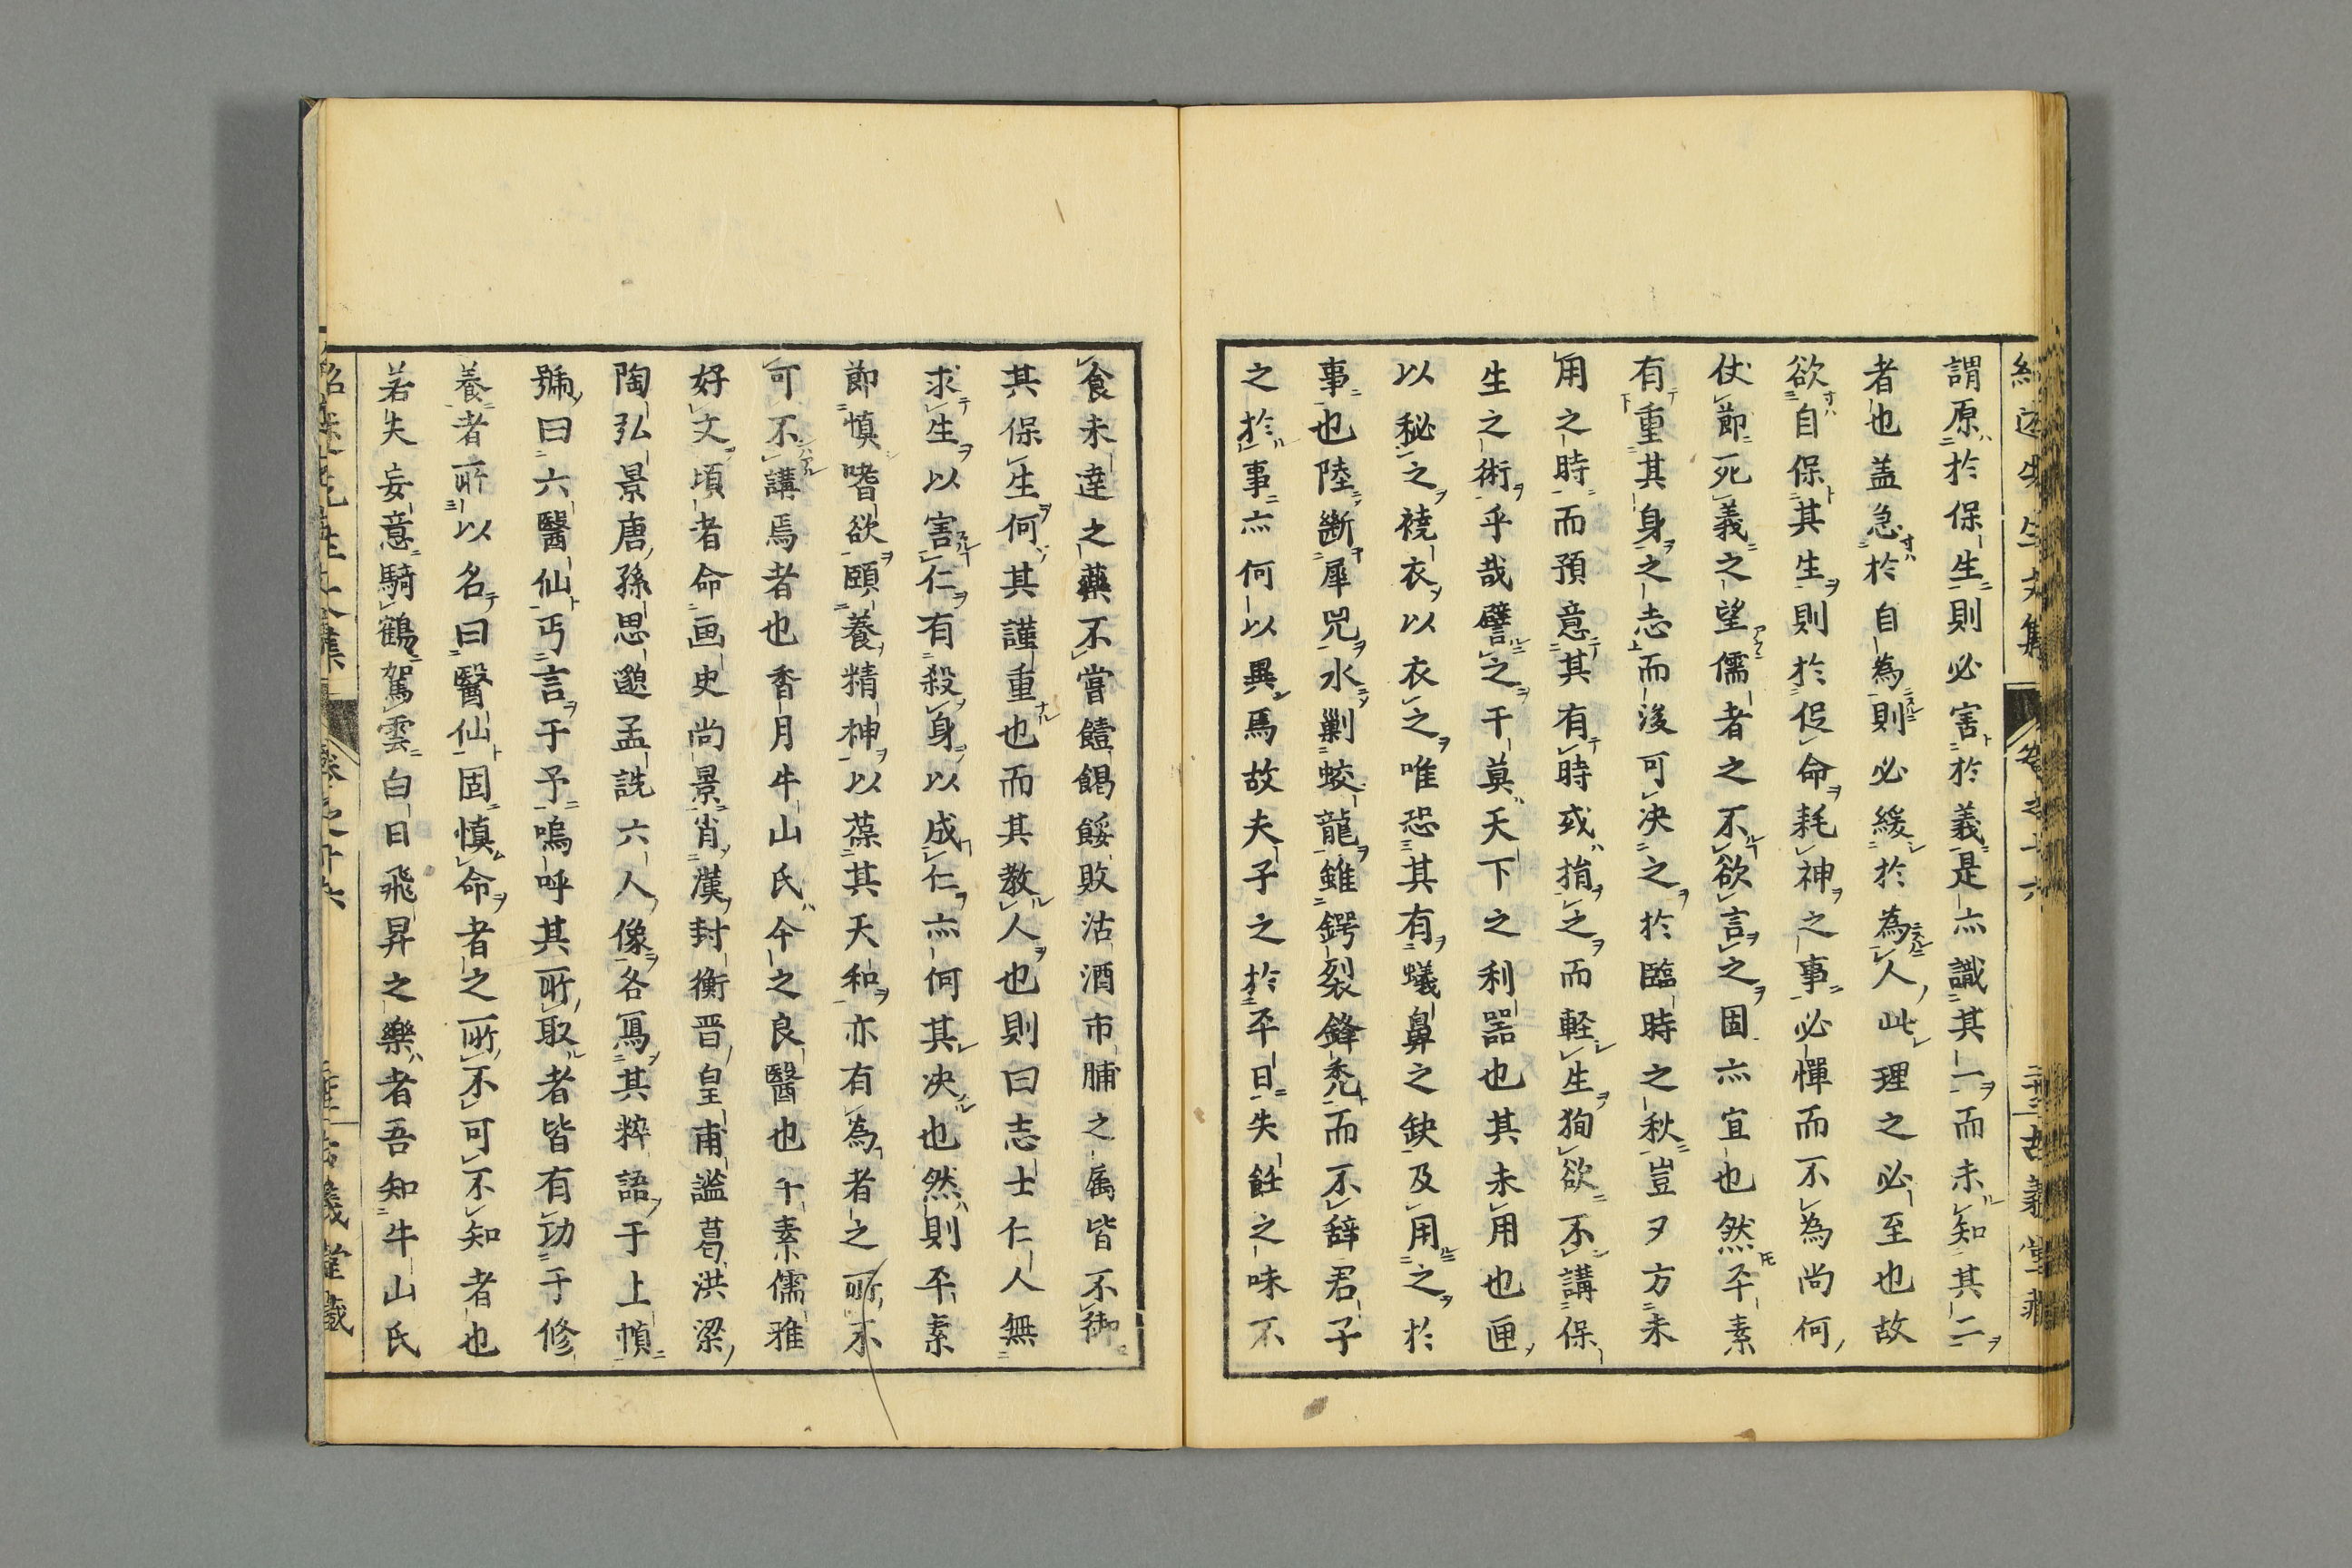 謂原於保生則必害於義是亦識其一而未知其二
者也盖急於自為則必緩於為人此理之必至也故
欲自保其生則於促命耗神之事必憚而不為尚何
仗節死義之望儒者之不欲言之固亦宜也然平素
有重其身之志而後可决之於臨時之秋豈夕方未
用之時而預意其有時或捐之而軽生狥欲不講保
生之術乎哉譬之干莫天下之利器也其未用也匣
以秘之襓衣以衣之唯恐其有蟻鼻之缺及用之於
事也陸断犀兕水剿蛟龍雖鍔裂鋒禿而不辞君子
之於事亦何以異焉故夫子之於平日失飪之味不
食未達之藥不嘗饐餲餒敗沽酒市脯之属皆不御
其保生何其謹重也而其教人也則曰志士仁人無
求生以害仁有殺身以成仁亦何其决也然則平素
節慎嗜欲頤養精神以葆其天和亦有為者之所不
可不講焉者也香月牛山氏今之良醫也千素儒雅
好文頃者命画史尚景肖漢封衡晋皇甫謐葛洪梁
陶弘景唐孫思邈孟詵六人像各冩其粹語于上幀
號曰六醫仙丐言于予嗚呼其所取者皆有功于修
養者所以名曰醫仙固慎命者之所不可不知者也
若夫妄意騎鶴駕雲白日飛昇之樂者吾知牛山氏